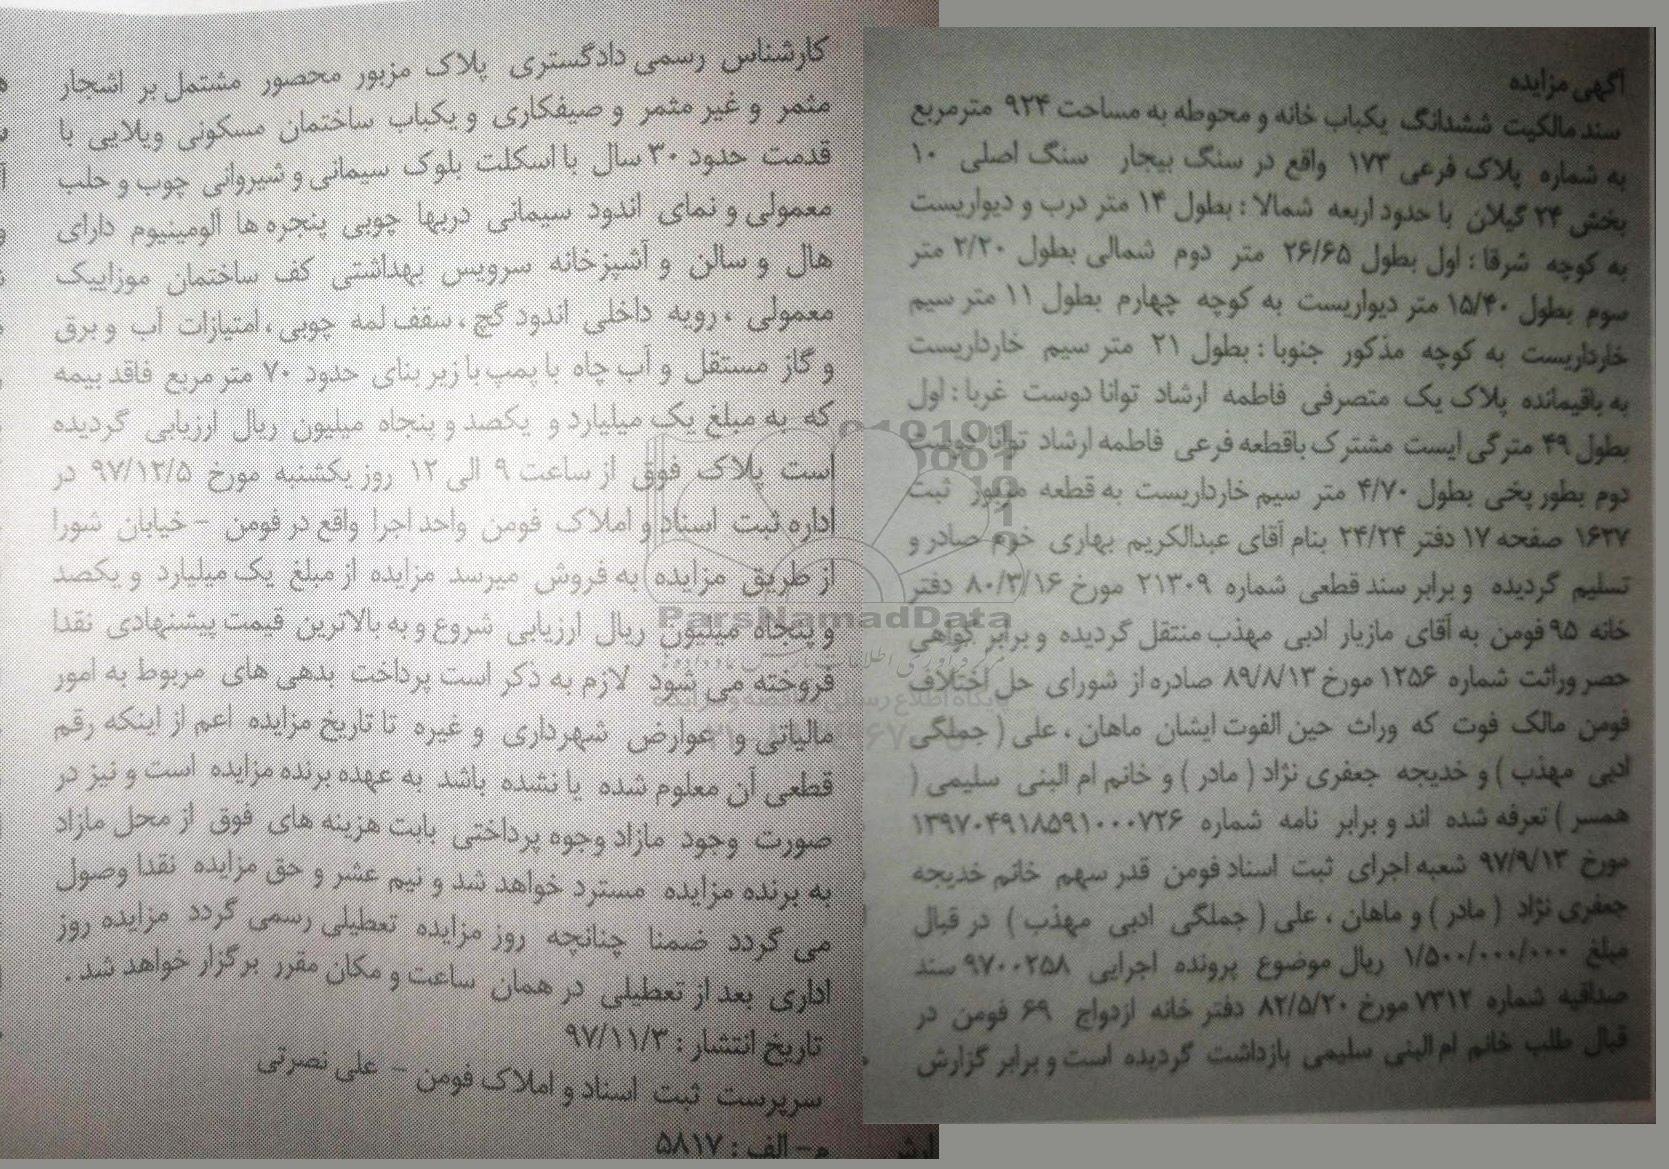 آگهی مزایده
سند مالکیت ششدانگ یکباب خانه و محوطه به مساحت ۹۲۴ مترمربع
به شماره پلاک فرعی ۱۷۳ واقع در سنگ بیجار سنگ اصلی ۱۰
بخش ۲۴ گیلان با حدود اربعه شمالا : بطول ۱۴ متر درب و دیواریست
به کوچه شرقا : اول بطول ۲۶/۶۵ متر دوم شمالی بطول ۲/۲۰ متر
سوم بطول ۱۵/۴۰ متر دیواریست به کوچه چهارم بطول ۱۱ متر سیم
خارداریست به کوچه مذکور جنوبا : بطول ۲۱ متر سیم خارداریست
به باقیمانده پلاک یک متصرفی فاطمه ارشاد توانا دوست غربا : اول
بطول ۴۹ مترگی ایست مشترک باقطعه فرعی فاطمه ارشاد توانا دوست
دوم بطور پخی بطول ۴/۷۰ متر سیم خارداریست به قطعه مزبور ثبت
۱۶۳۷ صفحه ۱۷ دفتر ۲۴/۲۴ بنام آقای عبدالکریم بهاری خرم صادر و
تسلیم گردیده و برابر سند قطعی شماره ۲۱۳۰۹ مورخ ۸۰/۳/۱۶ دفتر
خانه ۹۵ فومن به آقای مازیار ادبی مهذب منتقل گردیده و برابر گواهی
حصر وراثت شماره ۱۲۵۶ مورخ ۸۹/۸/۱۳ صادره از شورای حل اختلاف
فومن مالک فوت که وراث حین الفوت ایشان ماهان ، علی ( جملگی
ادبی مهذب ) و خدیجه جعفری نژاد ( مادر ) و خانم ام البنی سلیمی (
همسر ) تعرفه شده اند و برابر نامه شماره ۱۳۹۷۰۴۹۱۸۵۹۱۰۰۰۷۲۶
مورخ ۹۷/۹/۱۳ شعبه اجرای ثبت اسناد فومن قدر سهم خانم خدیجه
جعفری نژاد ( مادر ) و ماهان ، علی ( جملگی ادبی مهذب ) در قبال
مبلغ ۱/۵۰۰/۰۰۰/۰۰۰ ریال موضوع پرونده اجرایی ۹۷۰۰۲۵۸ سند
صداقیه شماره ۷۳۱۲ مورخ ۸۲/۵/۲۰ دفتر خانه ازدواج ۶۹ فومن در
قبال طلب خانم ام البنی سلیمی بازداشت گردیده است و برابر گزارش
کارشناس رسمی دادگستری پلاک مزبور محصور مشتمل بر اشجار
مثمر و غیر مثمر و صیفکاری و یکباب ساختمان مسکونی ویلایی با
قدمت حدود ۳۰ سال با اسکلت بلوک سیمانی و شیروانی چوب و حلب
معمولی و نمای اندود سیمانی دربها چوبی پنجره ها آلومینیوم دارای
هال و سالن و آشپزخانه سرویس بهداشتی کف ساختمان موزاییک
معمولی ، رویه داخلی اندود گچ ، سقف لمه چوبی ، امتیازات آب و برق
و گاز مستقل و آب چاه با پمپ با زیر بنای حدود ۷۰ متر مربع فاقد بیمه
که به مبلغ یک میلیارد و یکصد و پنجاه میلیون ریال ارزیابی گردیده
است پلاک فوق از ساعت ۹ الی ۱۲ روز یکشنبه مورخ ۹۷/۱۲/۵ در
اداره ثبت اسناد و املاک فومن واحد اجرا واقع در فومن – خیابان شورا
از طریق مزایده به فروش میرسد مزایده از مبلغ یک میلیارد و یکصد
و پنجاه میلیون ریال ارزیابی شروع و به بالاترین قیمت پیشنهادی نقدا
فروخته می شود لازم به ذکر است پرداخت بدهی های مربوط به امور
مالیاتی و عوارض شهرداری و غیره تا تاریخ مزایده اعم از اینکه رقم
قطعی آن معلوم شده یا نشده باشد به عهده برنده مزایده است و نیز در
صورت وجود مازاد وجوه پرداختی بابت هزینه های فوق از محل مازاد
به برنده مزایده مسترد خواهد شد و نیم عشر و حق مزایده نقدا وصول
می گردد ضمنا چنانچه روز مزایده تعطیلی رسمی گردد مزایده روز
اداری بعد از تعطیلی در همان ساعت و مکان مقرر برگزار خواهد شد .
تاریخ انتشار : ۹۷/۱۱/۳
سرپرست ثبت اسناد و املاک فومن – علی نصرتی
م – الف : ۵۸۱۷
ParsNamadData